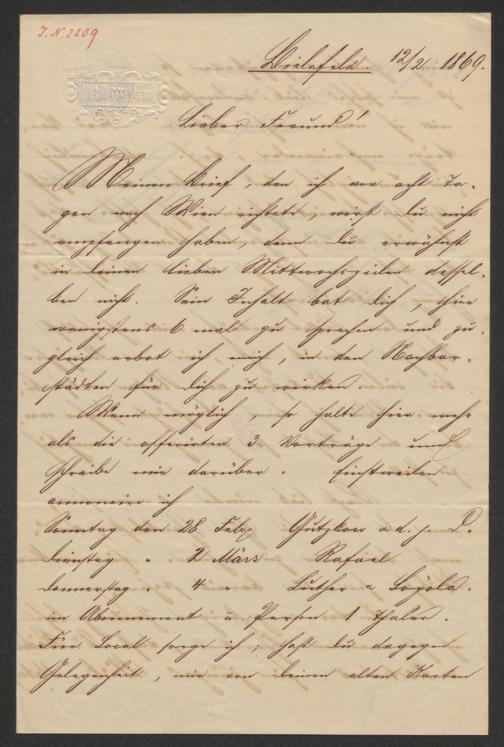 I.N. 2209
Bielefeld. 12/2 1869.
Lieber Freund!
Meinen Brief, den ich vor acht Ta-
gen nach Wien richtete, wirst Du nicht
empfangen haben, denn Du erwähnst
in deinen lieben Mittwochszeilen dessel-
ben nicht. Sein Inhalt bat Dich, hier
wenigstens 6 mal zu sprechen und zu-
gleich erbot ich mich, in den Nachbar-
städten für Dich zu wirken.
Wenn möglich, so halte hier mehr
als die offerirten 3 Vorträge und
schreibe mir darüber. Einstweilen
annoncire ich
Sonntag den 28 Febr Gutzkow u. d. j. D.
Dienstag " 2 März Rafael
Donnerstag " 4 " Luther u Loyola.
im Abonnement a Person 1 Thaler.
Für Local sorge ich, hast Du dagegen
Gelegenheit, mir von deinen alten Karten